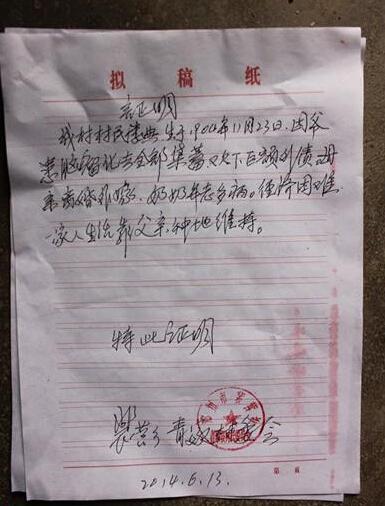 拟稿纸
证明
我村村民李典生于1904年11月23日,因爷
患脑瘤花去全部集蓄又欠下巨额外债,母
亲离婚,奶奶年老多病。经济困难
一家人生活靠父亲种地维持。
特此证明
裴营乡青
2014.6.13.
第 页